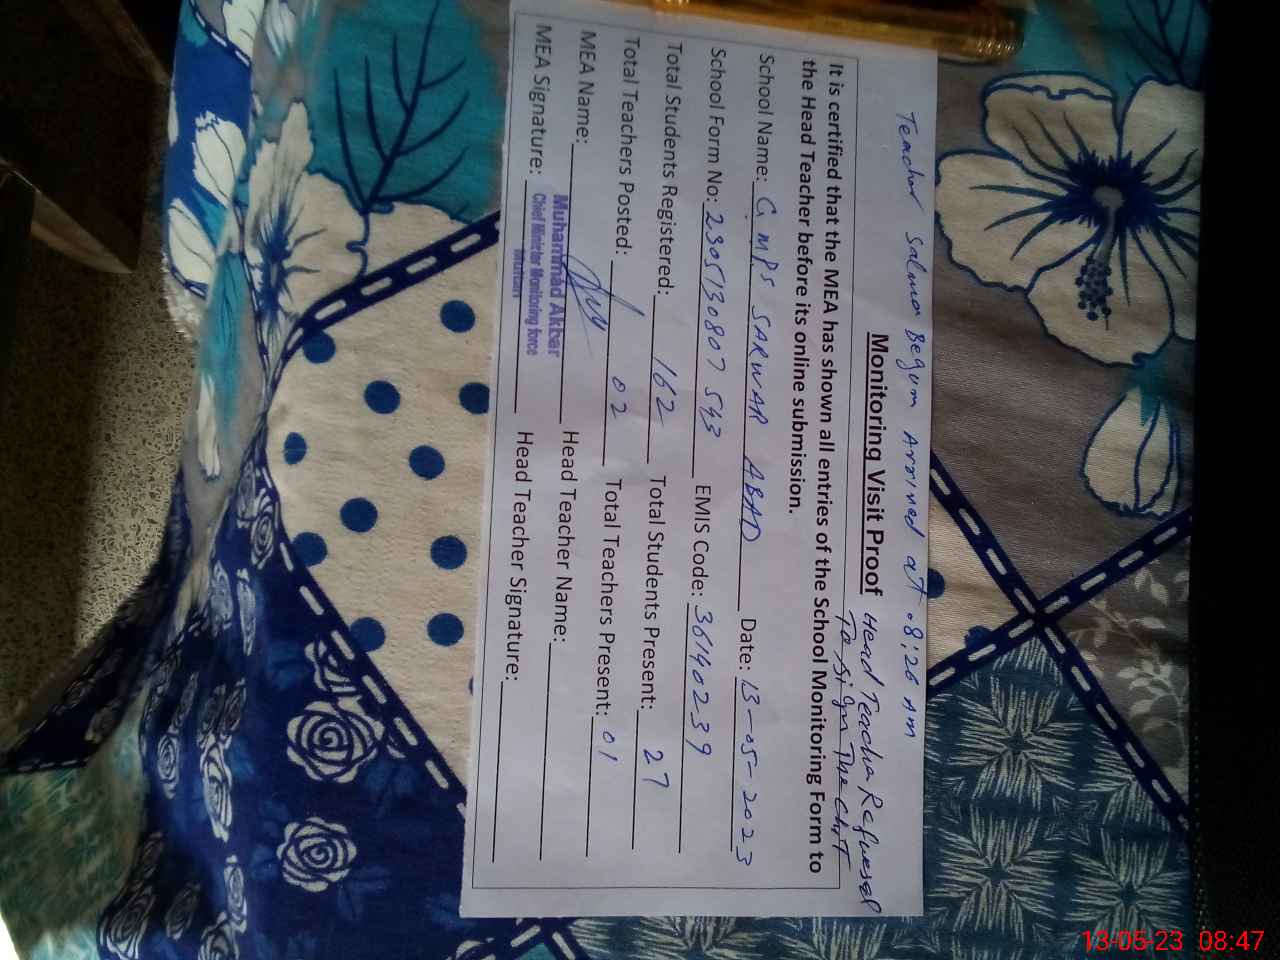 Teacher Salma Begum Arrived at 08:26 AM
Monitoring Visit Proof Head Teacher Refused
To sign The chit
It is certified that the MEA has shown all entries of the School Monitoring Form to
the Head Teacher before its online submission.
School Name: GMPS SARWAR ABAD Date: 13-05-2023
School Form No: 2305130807 543 EMIS Code: 36140239
Total Students Registered: 162 Total Students Present: 27
Total Teachers Posted: 02 Total Teachers Present: 01
MEA Name: Head Teacher Name:
MEA Signature: Head Teacher Signature:
Muhammad Akbar
Chief Minister Monitoring force
Multan
13-05-23 08:47